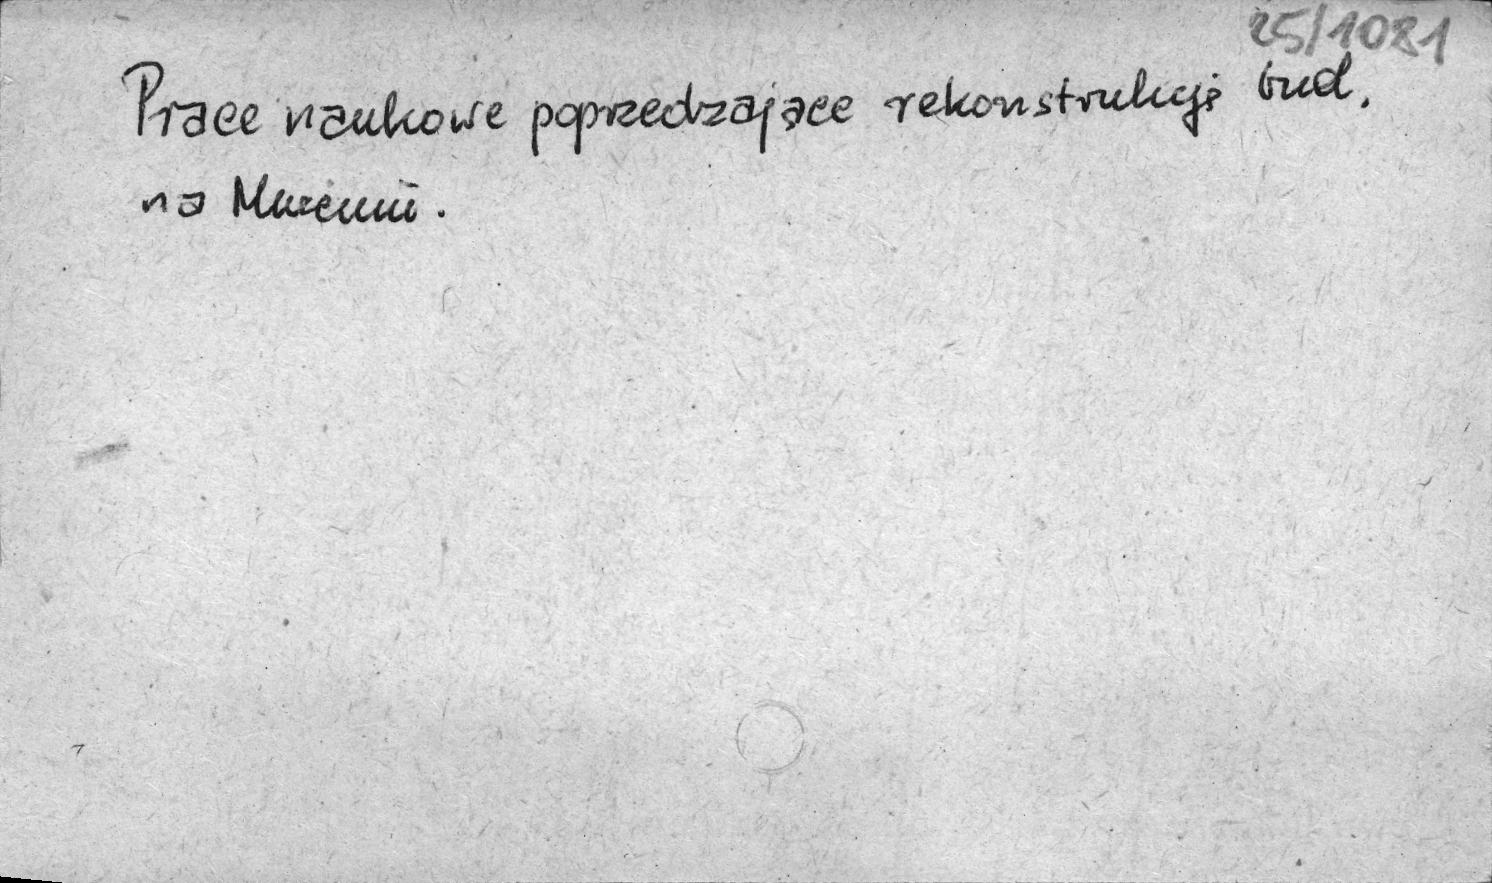 25/1081
Prace naukowe poprzedzające rekonstrukcję bud.
na Muzeum.